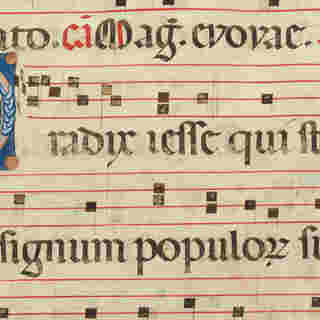 ato. cã Mag̃. evovae.
radix iesse qui st
signum populoꝝ su